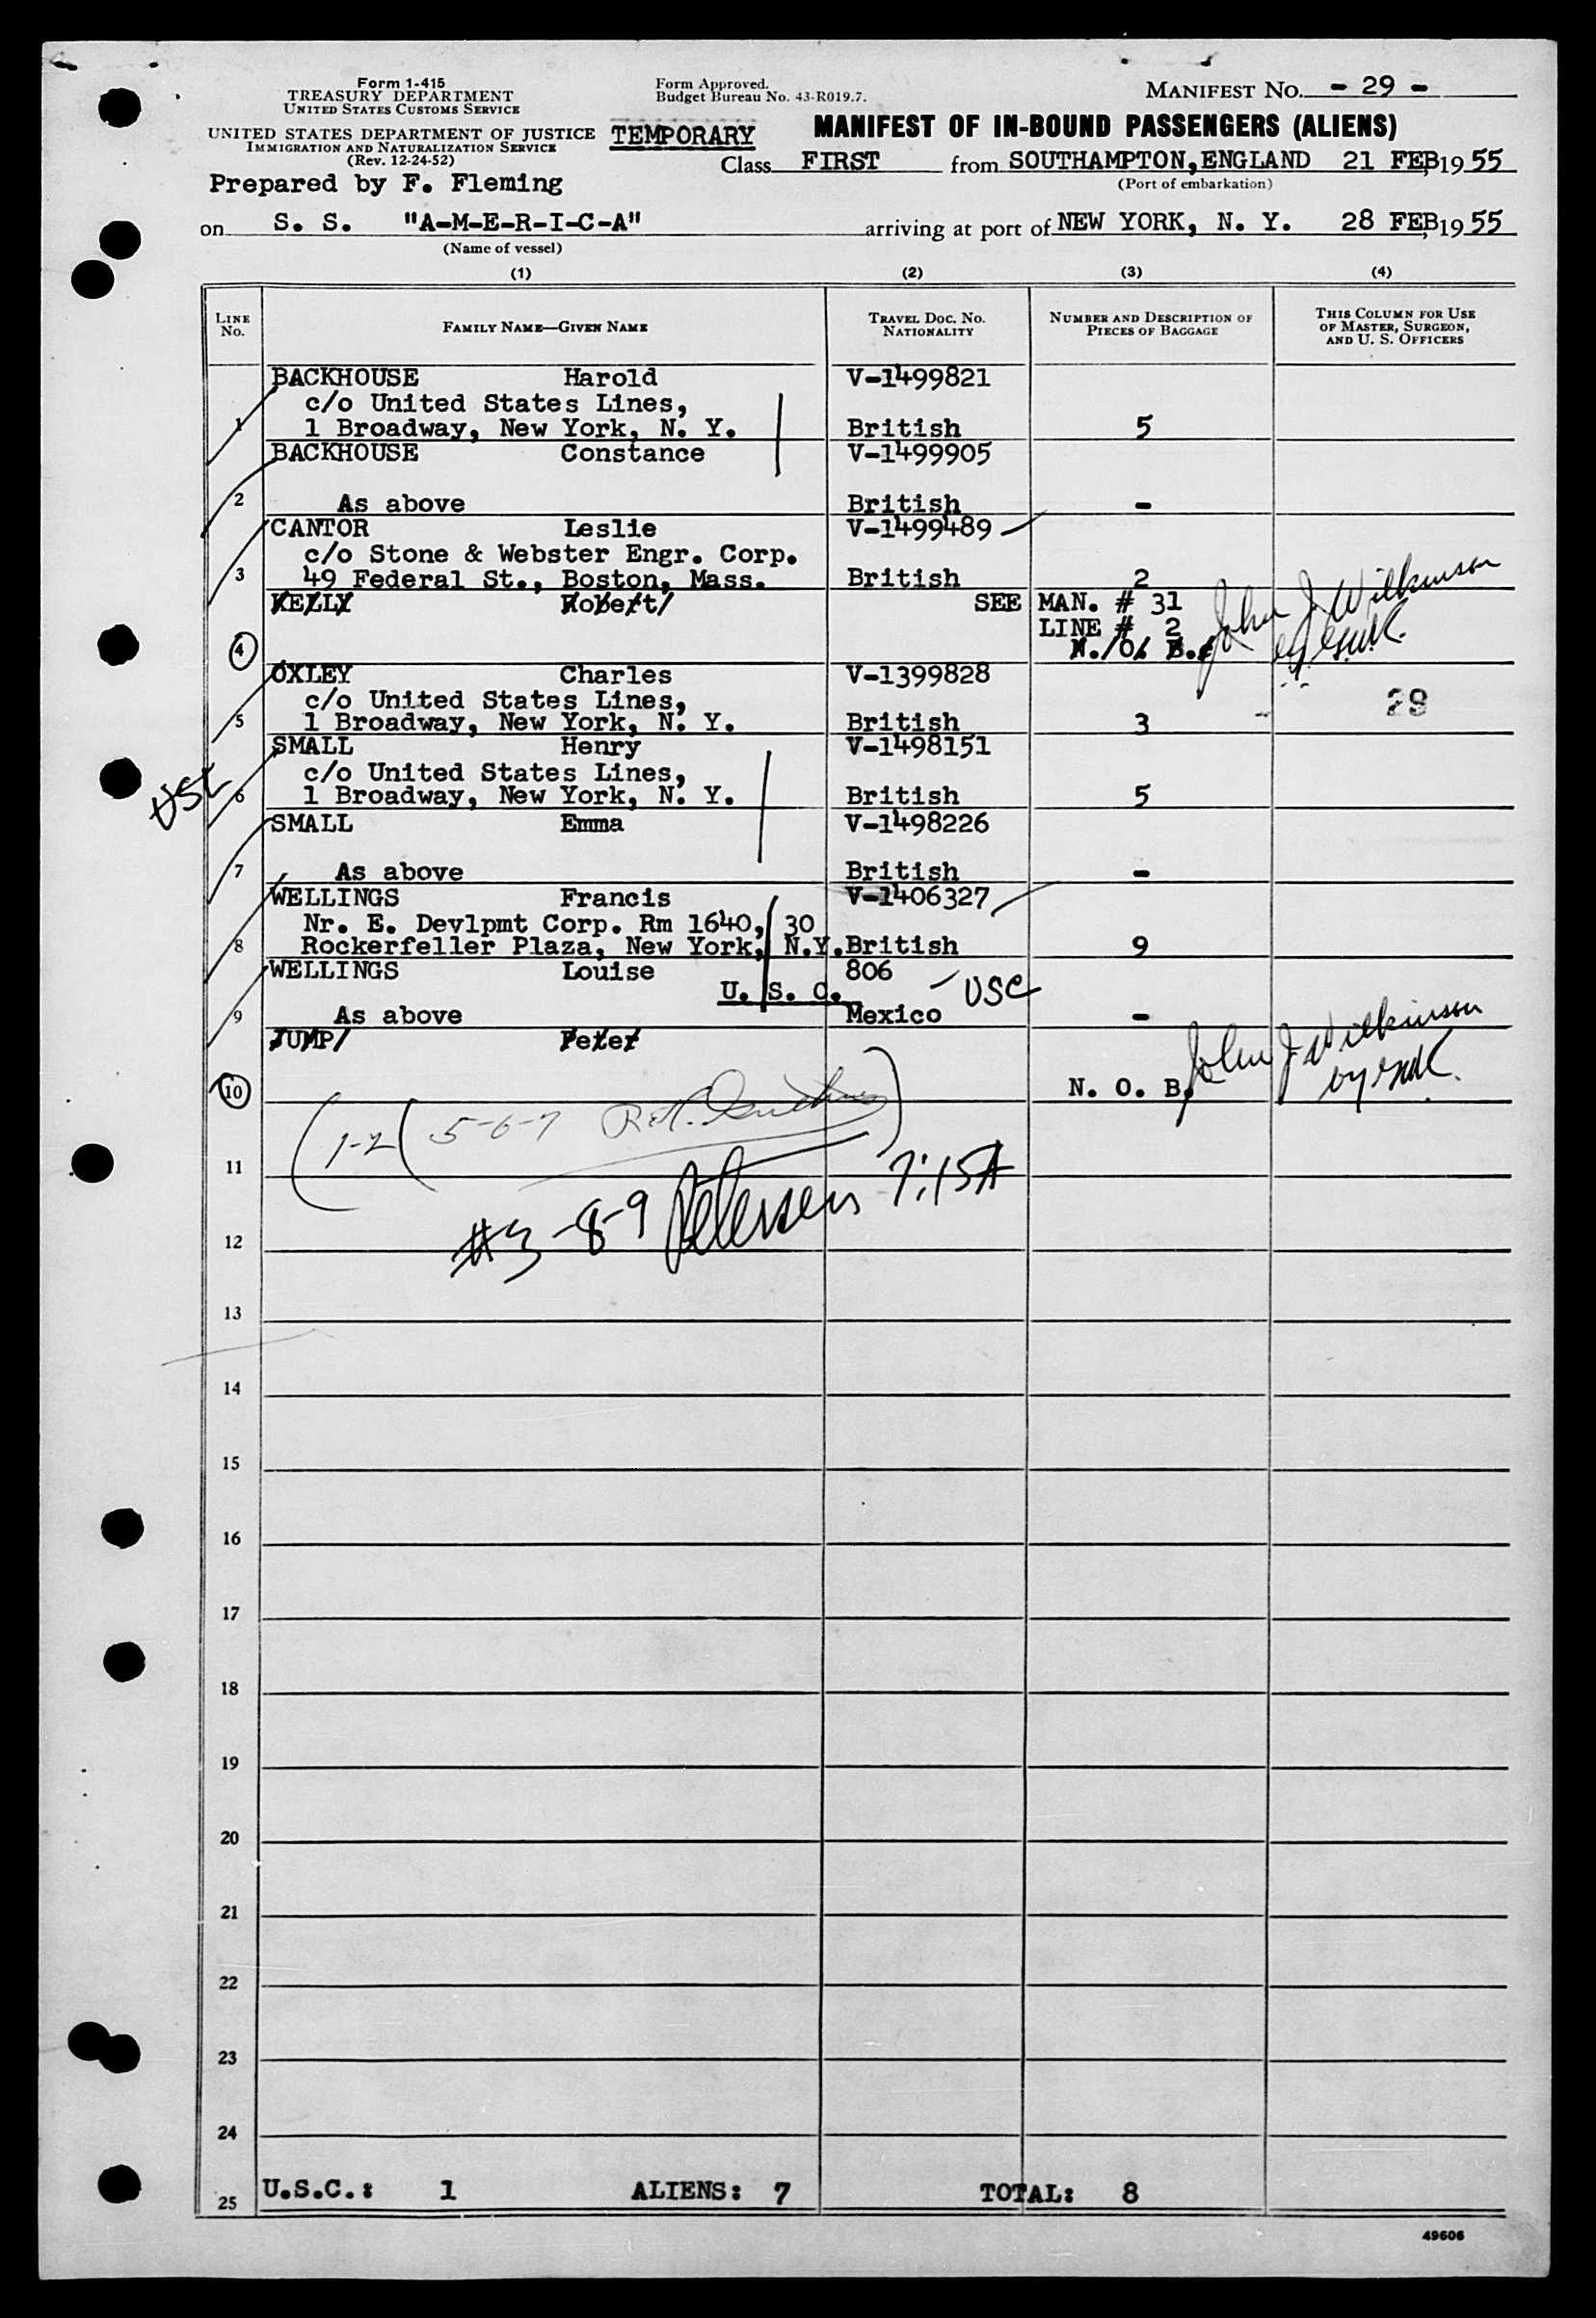 Form 1-415
TREASURY DEPARTMENT
UNITED STATES CUSTOMS SERVICE
UNITED STATES DEPARTMENT OF JUSTICE
IMMIGRATION AND NATURALIZATION SERVICE
(Rev. 12-24-52)
Prepared by F. Fleming
Form Approved.
Budget Bureau No. 43-R019.7.
TEMPORARY
MANIFEST NO. - 29 -
MANIFEST OF IN-BOUND PASSENGERS (ALIENS)
Class FIRST from SOUTHAMPTON, ENGLAND 21 FEB, 1955
(Port of embarkation)
on S. S. "A-M-E-R-I-C-A" arriving at port of NEW YORK, N. Y. 28 FEB, 1955
(Name of vessel)
(1) (2) (3) (4)
LINE NO. FAMILY NAME—GIVEN NAME TRAVEL DOC. NO. NATIONALITY NUMBER AND DESCRIPTION OF PIECES OF BAGGAGE THIS COLUMN FOR USE OF MASTER, SURGEON, AND U. S. OFFICERS
BACKHOUSE Harold V-1499821
c/o United States Lines,
1 1 Broadway, New York, N. Y. British 5
BACKHOUSE Constance V-1499905
2 As above British -
CANTOR Leslie V-1499489
c/o Stone & Webster Engr. Corp.
3 49 Federal St., Boston, Mass. British 2
KELLY Robert SEE MAN. # 31
LINE # 2
4 N. O. B. John J Wilkinson
OXLEY Charles V-1399828
c/o United States Lines,
5 1 Broadway, New York, N. Y. British 3 29
SMALL Henry V-1498151
c/o United States Lines,
USC 6 1 Broadway, New York, N. Y. British 5
SMALL Emma V-1498226
7 As above British -
WELLINGS Francis V-1406327
Nr. E. Devlpmt Corp. Rm 1640, 30
8 Rockerfeller Plaza, New York, N.Y. British 9
WELLINGS Louise 806
U. S. C. USC
9 As above Mexico -
JUMP Peter
10 N. O. B. John J Wilkinson
1-2 5-6-7
11
#3-8-9 Petersen 7:15A
12
13
14
15
16
17
18
19
20
21
22
23
24
25 U.S.C.: 1 ALIENS: 7 TOTAL: 8
49606